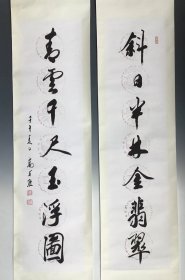 斜日半林金翡翠
青雲千尺玉浮圖